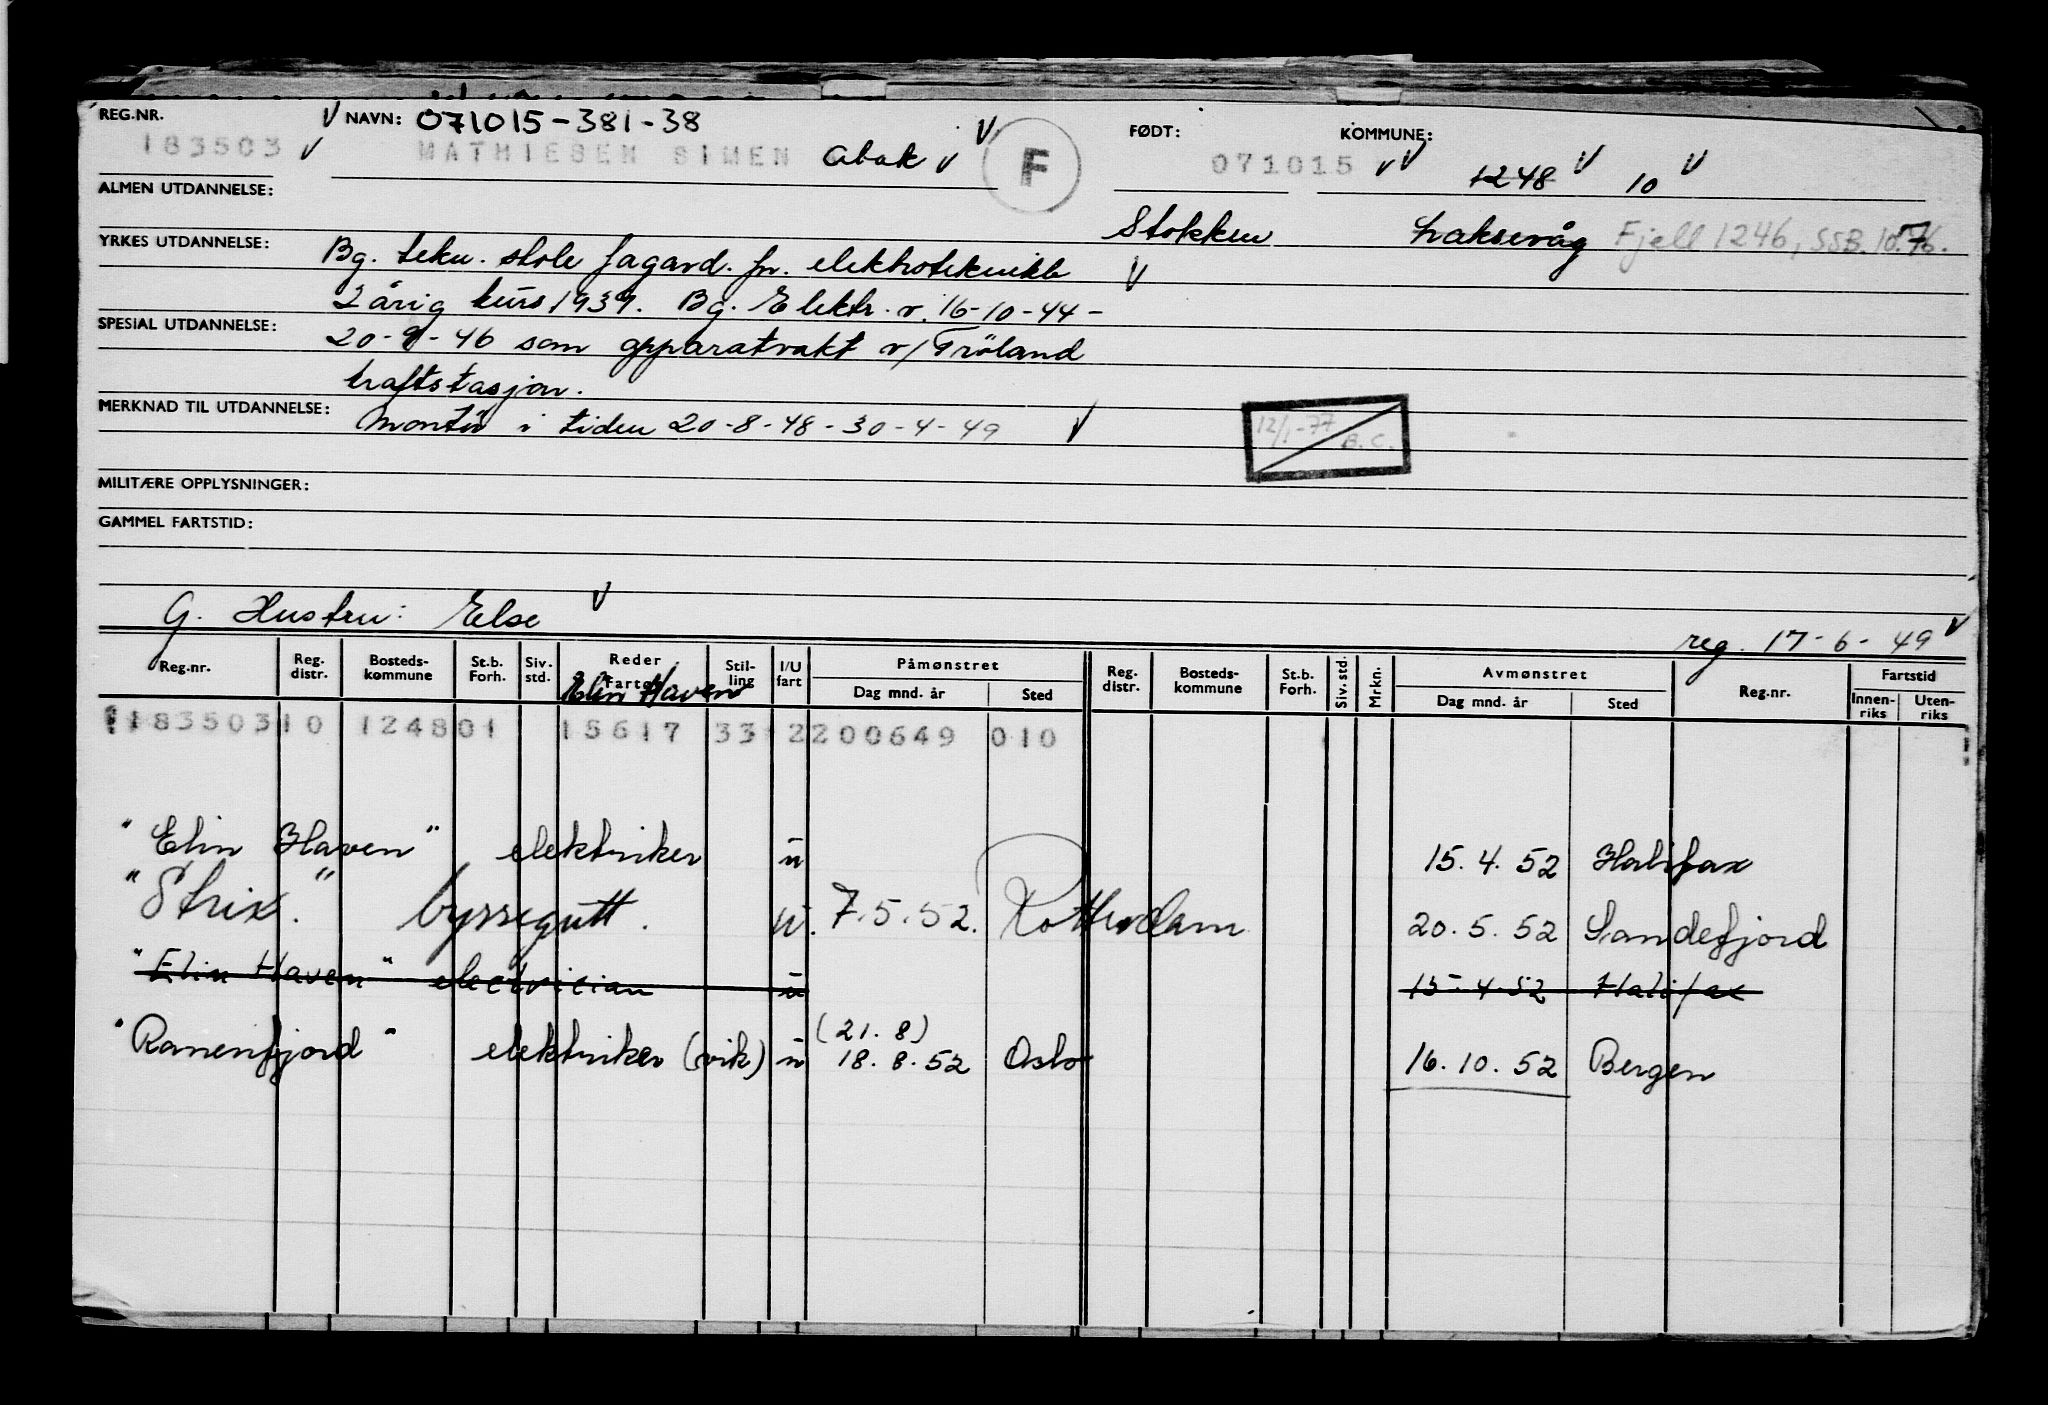 REG.NR. NAVN: 071015-381-38 FØDT: KOMMUNE:
183503 MATHIESEN SIMEN Abak F 071015 1248 10
ALMEN UTDANNELSE:
Stokken Laksevåg Fjell 1246, SSB. 10.76.
YRKES UTDANNELSE: Bg. tekn. skole fagavd. for elektroteknikk
2 årig kurs 1939. Bg. Elektr. v. 16-10-44-
SPESIAL UTDANNELSE: 20-9-46 som apparatvakt v/ Fröland
kraftstasjon.
MERKNAD TIL UTDANNELSE: Montör i tiden 20-8-48-30-4-49
12/1-77 B.C.
MILITÆRE OPPLYSNINGER:
GAMMEL FARTSTID:
G. Hustru: Else
reg. 17-6-49
Reg.nr. Reg. distr. Bosteds-kommune St.b. Forh. Siv. std. Reder Fartøy Stil-ling I/U fart Påmønstret Dag mnd. år Sted Reg. distr. Bosteds-kommune St.b. Forh. Siv. std. Mrkn. Avmønstret Dag mnd. år Sted Reg.nr. Fartstid Innen-riks Uten-riks
Elin Haven
183503 10 1248 01 15617 33 2 200649 010
"Elin Haven" elektriker u 15.4.52 Halifax
"Strix." byssegutt. u. 7.5.52. Rotterdam 20.5.52 Sandefjord
"Elin Haven" electrician u 15-4-52 Halifax
(21.8)
"Ranenfjord" elektriker (vik) u 18.8.52 Oslo 16.10.52 Bergen